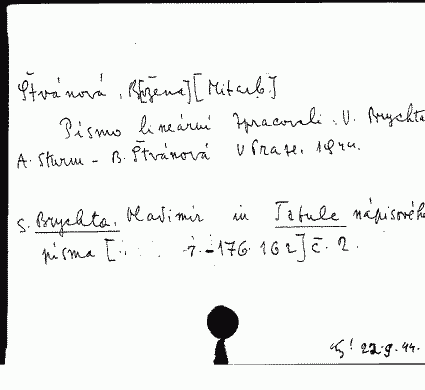 Štvánová, B[ožena] [Mitarb.]
Písmo lineární zpracovali V. Brychta
A. Sturm - B. Štvánová V Praze. 1944.
S. Brychta, Vladimír in Tabule nápisového
písma [ -176.162] č. 2.
22.9.44.